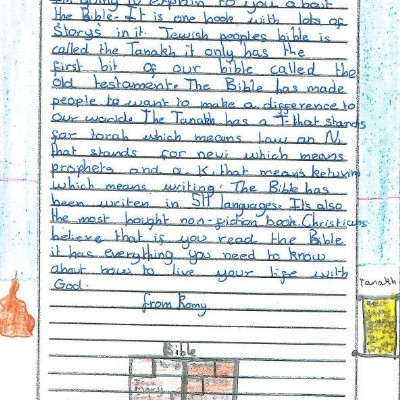 I'm going to explain to you about
the Bible. It is one book with lots of
storys in it. Jewish peoples bible is
called the Tanakh it only has the
first bit of our bible called the
old testament. The Bible has made
people to want to make a difference to
our world. The Tanakh has a T that stands
for torah which means law an N,
that stands for nevi which means
prophets and a K, that means ketuvim
which means writing. The Bible has
been writen in 511 languages. It's also
the most bought non-fiction book. Christians
believe that if you read the Bible
it has everything you need to know
about how to live your life with
God.
from Romy
Tanakh
Bible